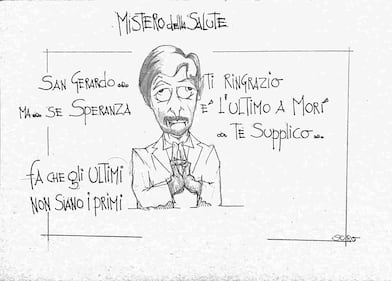 MISTERO della SALUTE
SAN GERARDO... TI RINGRAZIO
MA... SE SPERANZA E' L'ULTIMO A MORI'
... TE SUPPLICO...
FA CHE gli ULTIMI
NON SIANO I PRIMI